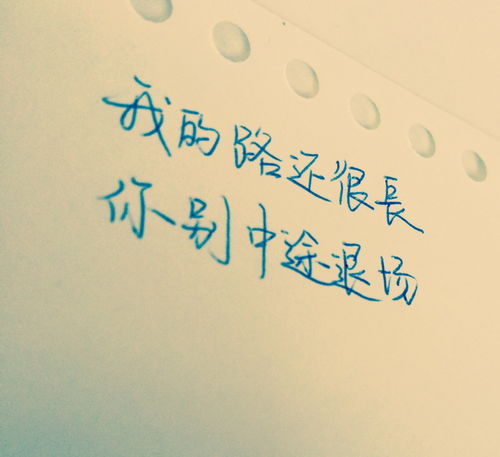 我的路还很長
你别中途退场